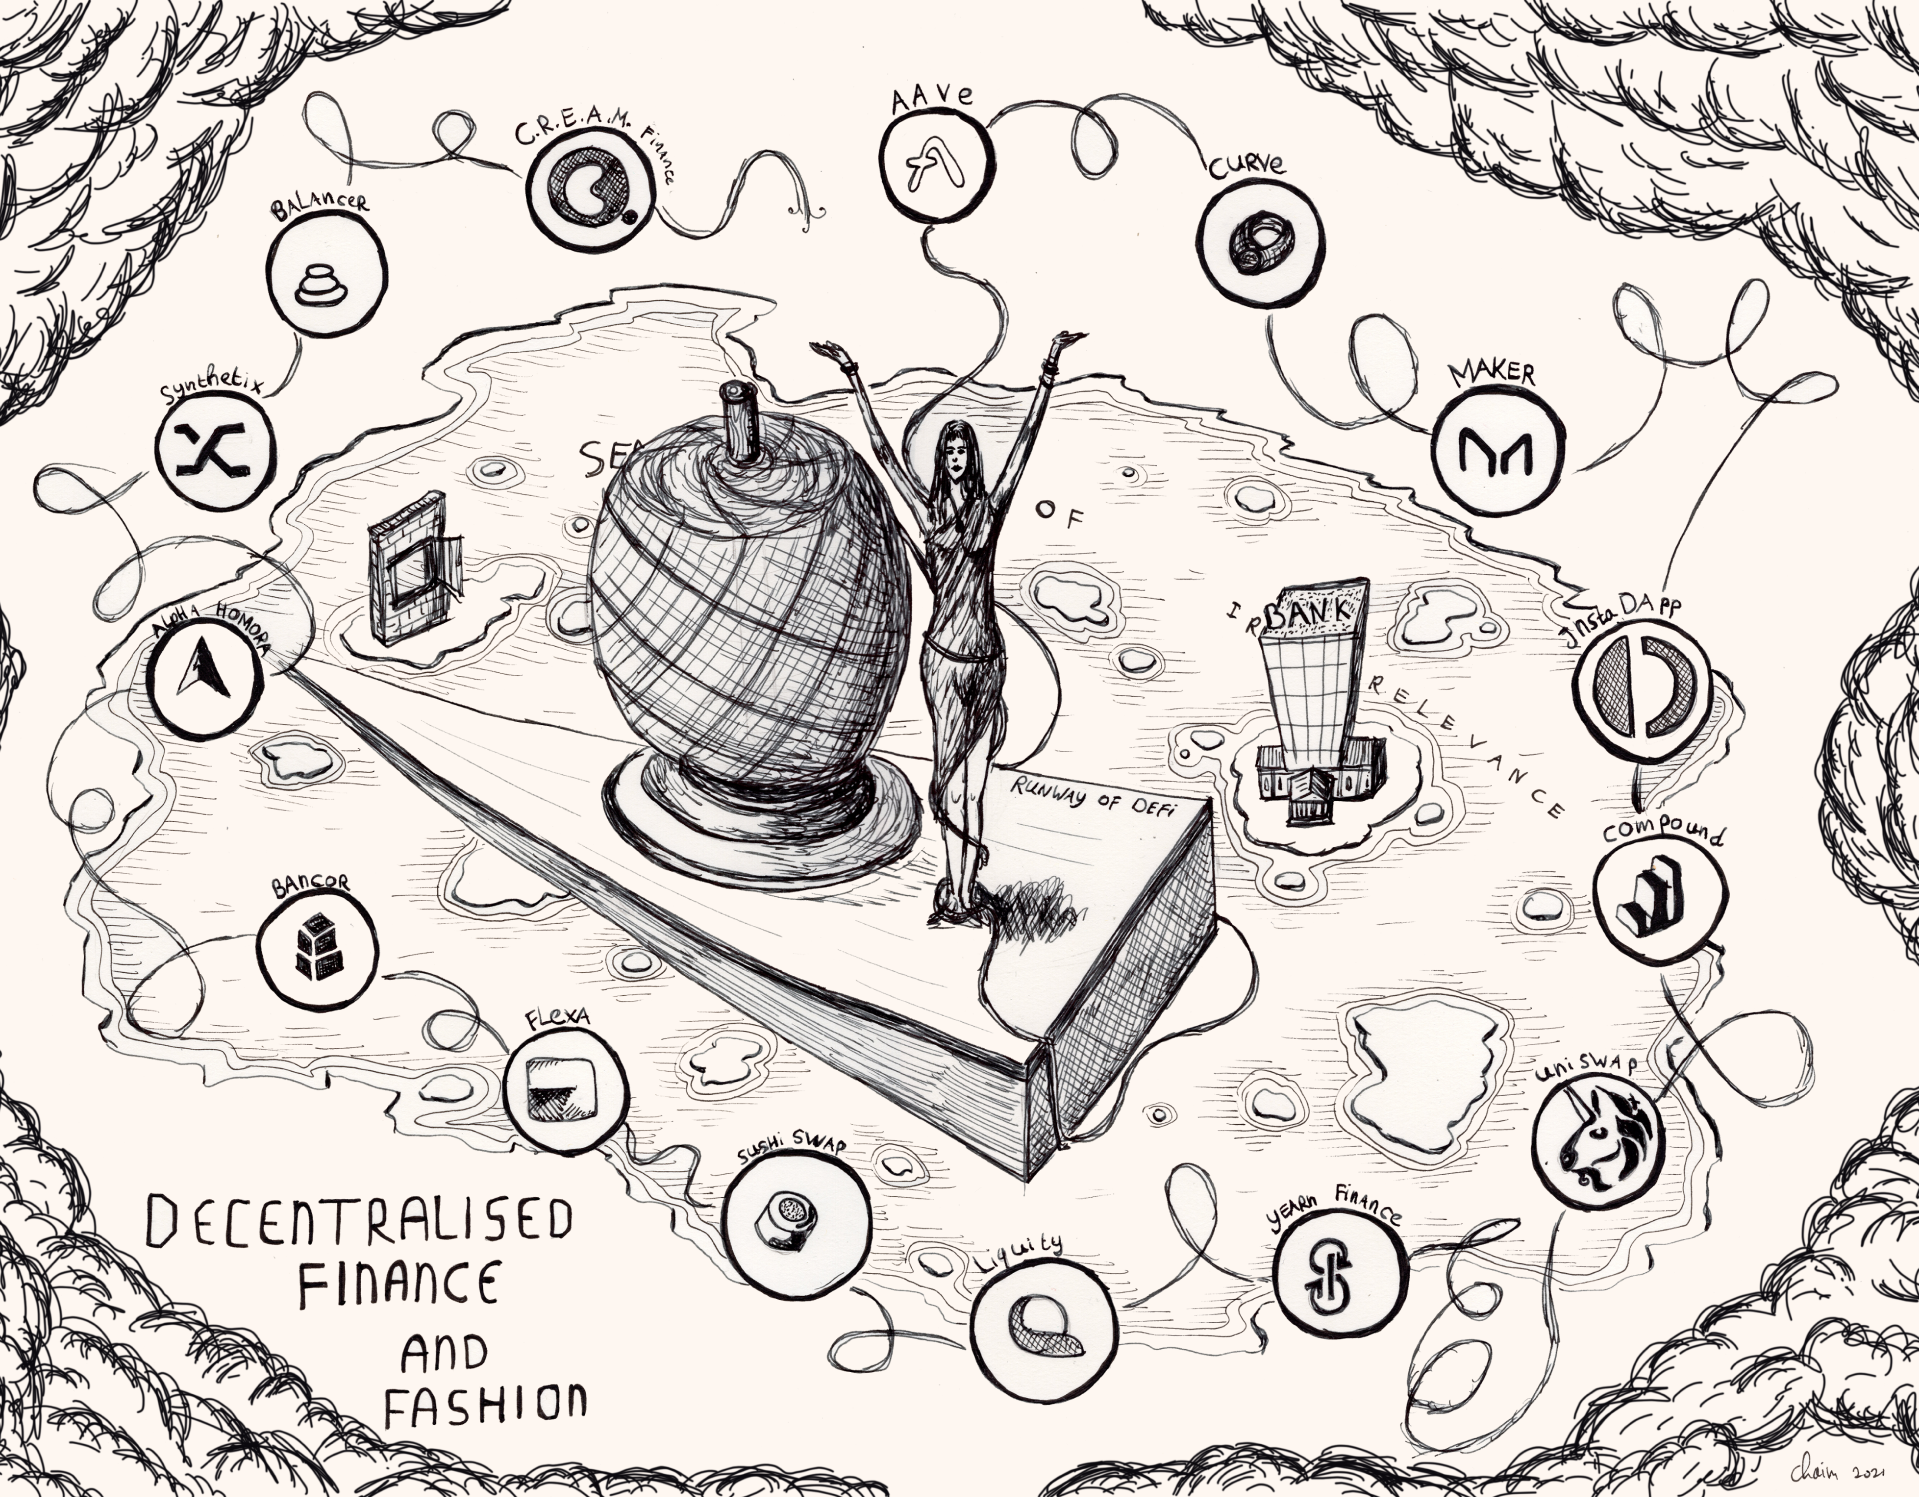 AAVe
C.R.E.A.M. Finance
CURVE
BALANCER
MAKER
Synthetix
SEA
OF
IR
BANK
RELEVANCE
InstaDApp
ALPHA HOMORA
RUNWAY OF DEFi
COMPOUND
BANCOR
FLEXA
UNISWAP
SUSHI SWAP
YEARN FINANCE
LIQUITY
DECENTRALISED
FINANCE
AND
FASHION
Chaim 2021